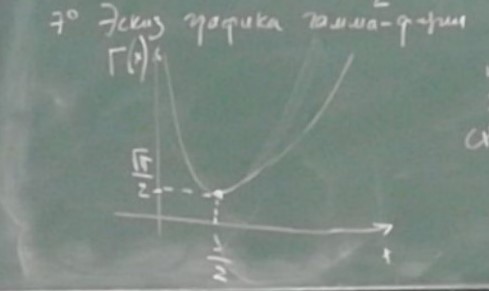 7° Эскиз графика гамма-фун
Γ(x)
√π/2
1/2